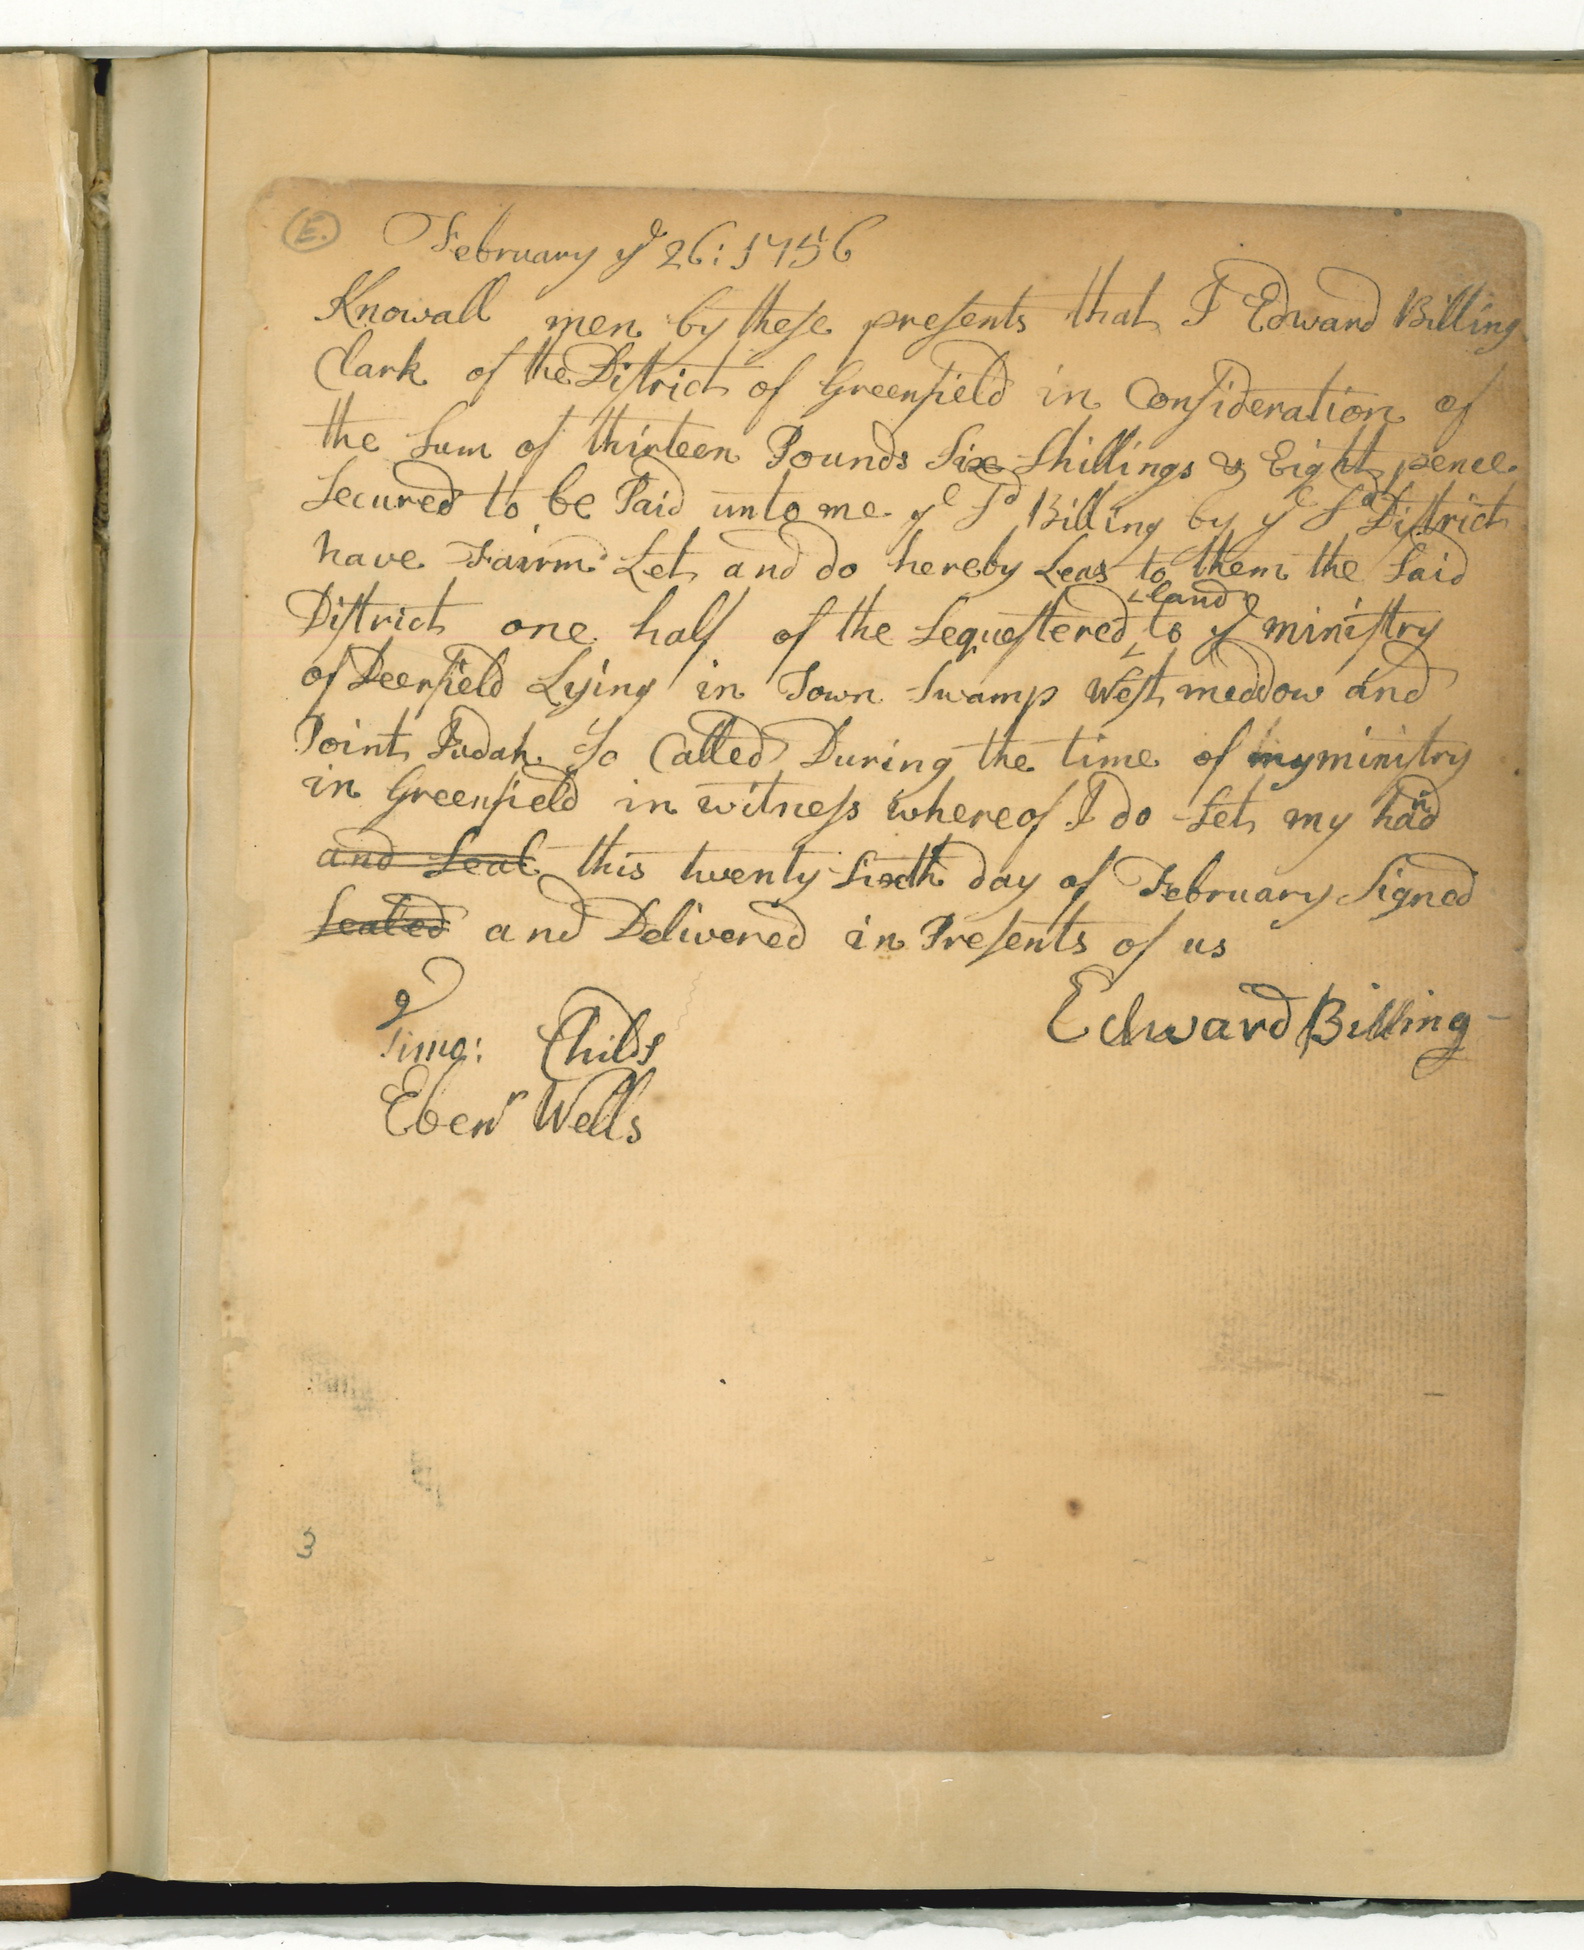 (E.)
February ye 26: 1756
Knowall men by these presents that I Edward Billing
Clark of the District of Greenfield in Consideration of
the Sum of thirteen Pounds Six Shillings & Eight pence
Secured to be Paid unto me ye Sd Billing by ye Sd District
have Fairm Let and do hereby Leas to them the Said
Land
District one half of the Sequestered to ye ministry
of Deerfield Lying in Town Swamp West meddow and
Point Judah So Called During the time of my ministry
in Greenfield in witness whereof I do Set my hand
and Seal this twenty Sixth day of February Signed
Sealed and Delivered in Presents of us
Edward Billing
Timo: Childs
Ebenr Wells
3